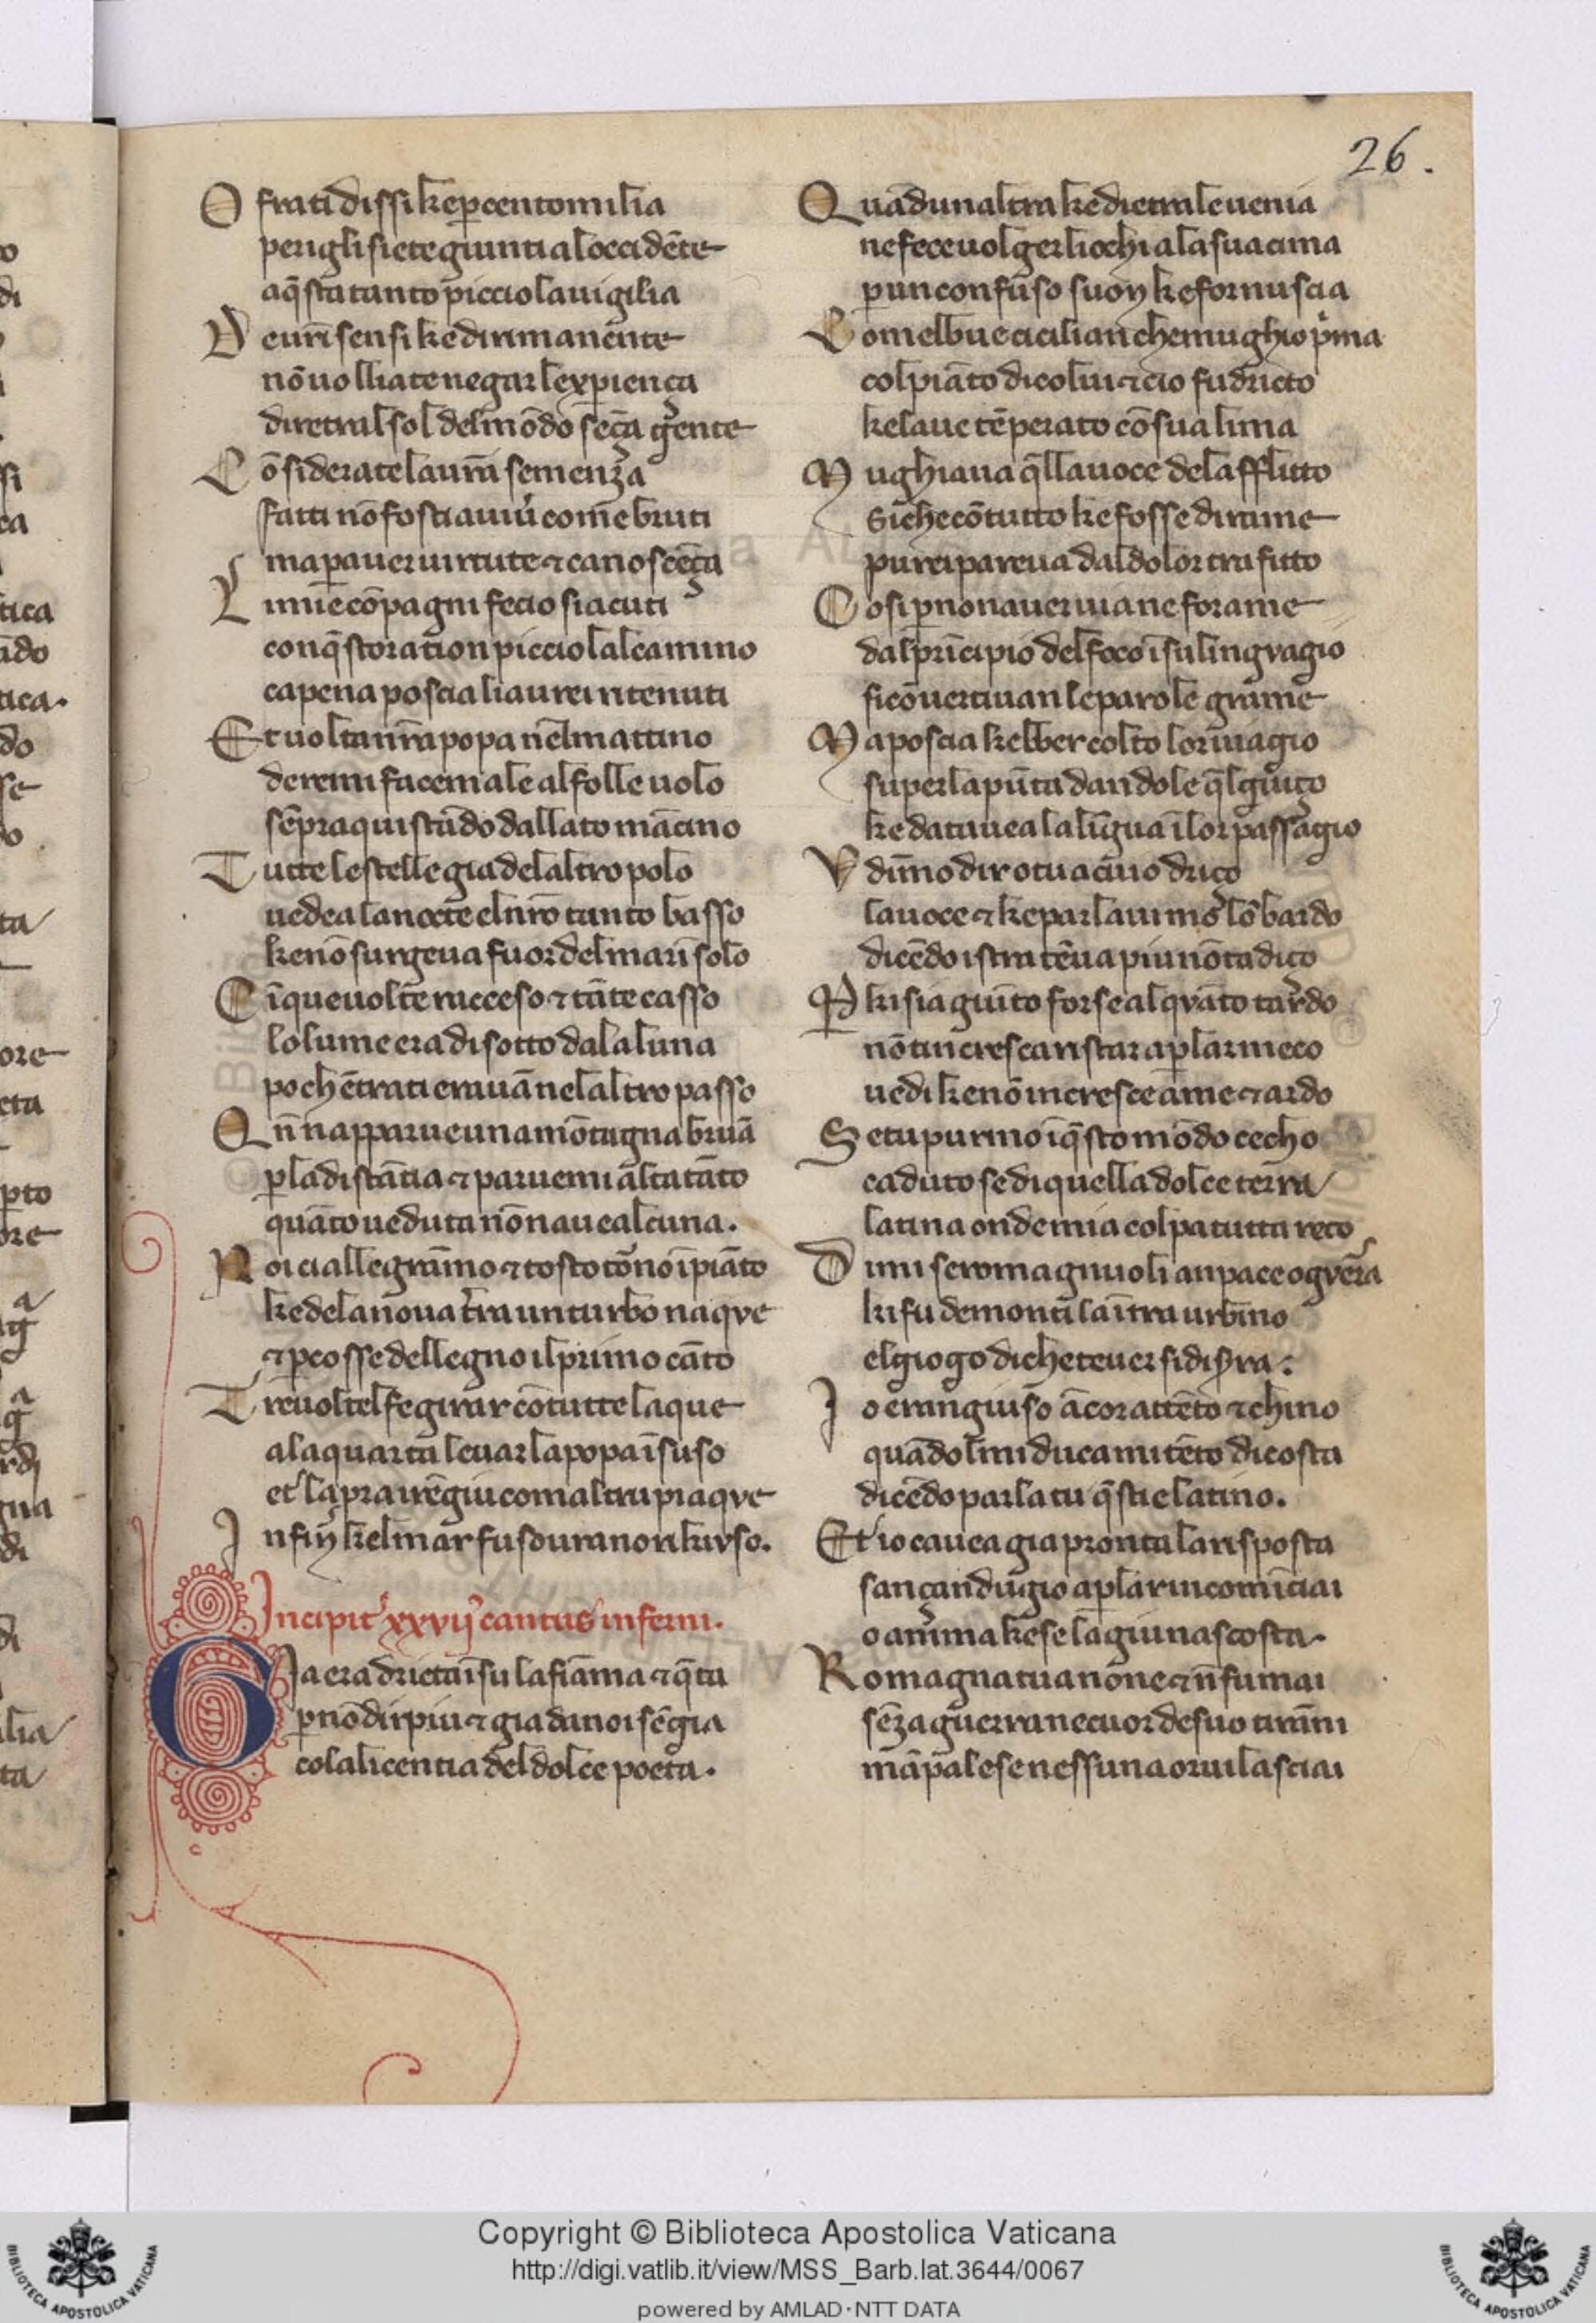 26.
O frati dissi ke p̱ cento milia
perigli siete giunti aloccidēte
aq̄sta tanto picciola uigilia
D eur̄i sensi ke dirimanente
nō uolliate negar lexp̱iença
diretral sol del mōdo sēça gente
C ōsiderate laur̄a semenza
fatti nō fosti a uiuͥ come bruti
ma p̱ auer uirtute ⁊ canoscēça
L i miecōpagni fecio si acuti
con q̄sto ration picciola lcamino
capena poscia li aurei ritenuti
Et uolta nr̄a popa nel mattino
de remi facem ale al folle uolo
sēpraquistādo dallato mācino
T utte le stelle gia delaltro polo
uedea lanocte elnr̄o tanto basso
ke nō surgeua fuor del mari solo
C īque uolte racceso ⁊ tāte casso
lo lume era di sotto dala luna
po chētrati erauā nelaltro passo
Q n̄ napparue una mōtagna bruā
p̱ ladistātia ⁊ paruemi alta tāto
quāto ueduta non nauea lcuna.
N oi ci allegrāmo ⁊ tosto tōno ī piāto
ke dela noua tr̄a un turbo naqve
⁊ p̱cosse dellegno il primo cāto
T re uoltel fe girar cō tutte laque
ala quarta leuar lapopa ī suso
et la pra ire ī giu comaltrui piaqve
I nfiȳ kel mar fu soura noi rikivso.
Incipit xxvij cantus inferni.
G ia era dricta ī su la fiāma ⁊ q̄ta
p̱ nō dir piu ⁊ gia da noi sē gia
cola licentia del dolce poeta.
Q uādunaltra ke dietra le uenia
ne fece uolger liochi ala sua cima
p̱ un confuso suoȳ ke for nuscia
C omel bue cicilian che mughio pͥma
col piāto di colui ⁊ cio fu dricto
ke lauc tēperato cō sua lima
M ughiaua q̄lla uoce de lafflitto
si che cō tutto ke fosse di rame
pur ei pareua dal dolor trafitto
C osi p̱ non auer uia ne forame
dal prīcipio del foco ī su lingvagio
si cōuertiuan le parole grame
M a poscia kebber colto lor uiagio
su per lapūta dandole q̄l guiço
ke dato auea la līgua ī lor passagio
V dīmo dir o tu acui io driço
la uoce ⁊ ke parlaui mo lōbardo
dicēdo istra tēn ua piu nō tadiço
P̱ kisia giūto forse al qvāto tardo
nō tincresca ristar a p̱lar meco
uedi ke nō incresce a me ⁊ ardo
S e tu pur mo ī q̄sto mōdo cecho
caduto se di quella dolce terra
latina onde mia colpa tutta reco
D immi se romagniuoli an pace o gvera
ki fu de monti la ītra urbino
el giogo di che teuer si diss̄ra:
I o era ī ngiuso ācor attēto ⁊ chino
quādo lmi duca mi tēto di costa
dicēdo parla tu q̄sti e latino.
Et io cauea gia pronta la risposta
sançandugio a p̱lar incomīciai
o anīma ke se la giu nascosta.
R omagna tua non e ⁊ n̄ fu mai
sēza guerra ne cuor de suo tirāni
ma ī palese nessuna or ui lasciai
Copyright © Biblioteca Apostolica Vaticana
http://digi.vatlib.it/view/MSS_Barb.lat.3644/0067
powered by AMLAD·NTT DATA
BIBLIOTECA APOSTOLICA VATICANA
BIBLIOTECA APOSTOLICA VATICANA